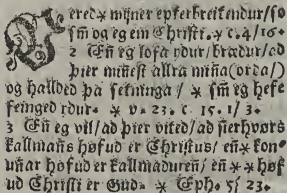 Vereð * mijner epterbreitendur / so
sm og eg em Christi. * c. 4 / 16. *
2 En eg lofa ydur / brædur / ad
þier minest allra miña (orda /)
og halded þa setninga / * sm eg hefe
feinged ydur. * v. 23. c. 15. 1 / 3. *
3 En eg vil / ad þier vited / ad sierhvors
kallmañs høfud er Christus / en * kon-
uñar høfud er kallmadureñ / en * * høf
ud Christi er Gud. * Eph. 5 / 23.